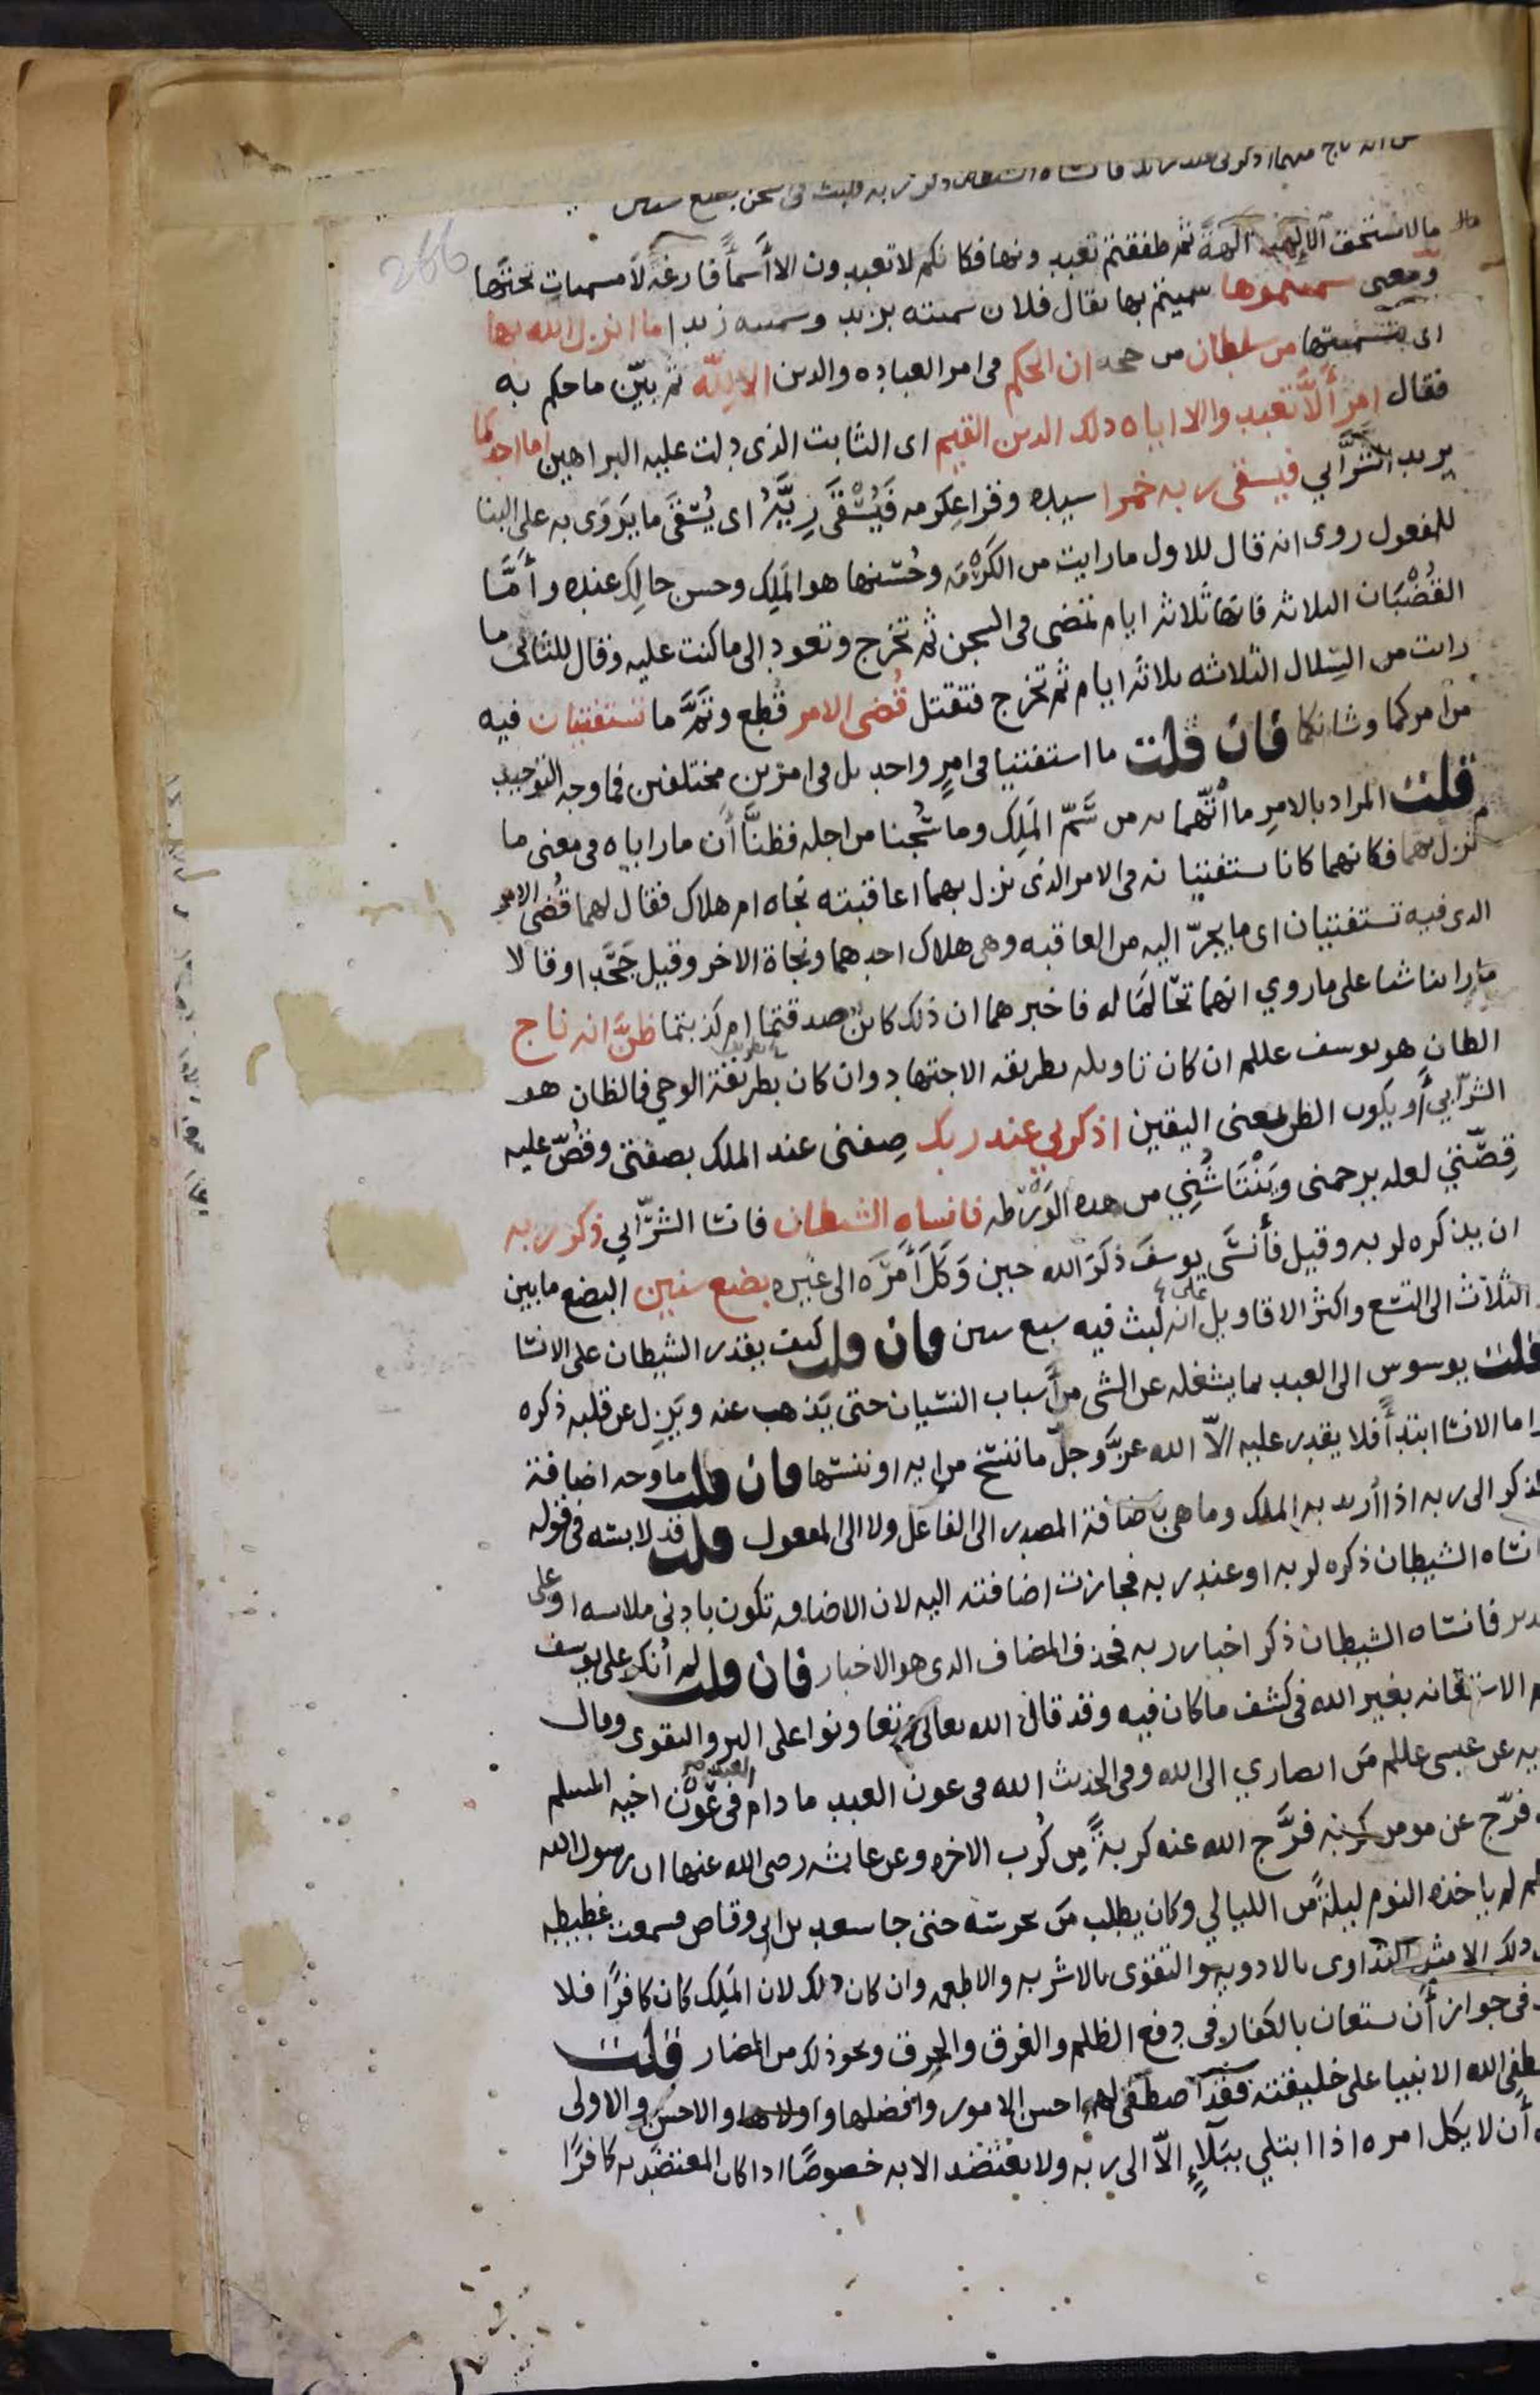 انه ناج منهما اذكرنى عند ربك فانساه الشيطان ذكر ربه فلبث فى السجن بضع سنين
266
ما لا يستحق الالهية الهة ثم طفقتم تعبدونها فكانكم لا تعبدون الا أسمأً فارغة لا مسميات تحتها
ومعنى سميتموها سميتم بها يقال فلان سميته بزيد وسميته زيدا ما انزل الله بها
اى بتسميتها من سلطان من حجه ان الحكم فى امر العباده والدين الا لِلّه ثم بيّن ما حكم به
فقال امر أَلَّا تعبدوا الا اياه ذلك الدين القيم اى الثابت الذى دلت عليه البراهين اما احدكما
يريد الشرَّابي فيسقى ربه خمرا سيده وقرا عِكرمه فَيُسْقَى رِيَّهُ اى يُسْقَى ما يَروَى به على البنا
للمفعول روى انه قال للاول ما رايت من الكَرْمَة وحُسْنها هو المَلِك وحسن حالك عنده وأمَّا
القُضْبَان الثلاثه فانها ثلاثة ايام تمضى فى السجن ثم تخرج وتعود الى ما كنت عليه وقال للثانى ما
رايت من السِّلال الثلاثه ثلاثة ايام ثم تخرج فتقتل قُضى الامر قُطع وتَمَّ ما تستفتيان فيه
من امركما وشانكما فان قلت ما استفتيا فى امرٍ واحد بل فى امرين مختلفين فما وجه التوحيد
قلت المراد بالامرِ ما أتُّهِما به من سَمّ المَلِك وما سُجنا من اجله فظنَّا أَن ما راياه فى معنى ما
نزل بهما فكانهما كانا يستفتيانه فى الامر الذى نزل بهما اعاقبته نجاه ام هلاك فقال لهما قُضى الامر
الذى فيه تستفتيان اى ما يجرّ اليه من العاقبه وهى هلاك احدهما ونجاة الاخر وقيل جَحَدا وقالا
ما راينا شيا على ما روي انهما تحالَمَا له فاخبرهما ان ذلك كائن صدقتما ام كذبتما ظنَّ انه ناج
الظان هو يوسف عللم ان كان تاويله بطريقه الاجتهاد وان كان بطريقة الوحي فالظان هو
الشرّابي أو يكون الظن بمعنى اليقين اذكرني عند ربك صِفنى عند الملك بصفتى وقُصّ عليه
قِصَّتِي لعله يرحمنى ويَنْتَاشُنِي من هذه الوَرْطه فانساه الشيطان فانسا الشرّابي ذكر ربه
ان يذكره لربه وقيل فأنسَى يوسفَ ذكرَ الله حين وَكَلَ أَمْرَه الى غيره بضع سنين البضع ما بين
الثلاث الى التسع واكثر الاقاويل على انه لبث فيه سبع سنين فان قلت كيف يقدر الشيطان على الانسا
قلت يوسوس الى العبد بما يشغله عن الشى من أسباب النسيان حتى يَذهب عنه ويَزل عن قلبه ذكره
واما الانسا ابتدأً فلا يقدر عليه الاّ الله عزَّ وجلّ ما ننسخ من ايه او ننسها فان قلت ما وجه اضافة
الذكر الى ربه اذا أُريد به الملك وما هى باضافة المصدر الى الفاعل ولا الى المفعول قلت قد لابسه فى قوله
فانساه الشيطان ذكره لربه او عند ربه فجازت اضافته اليه لان الاضافه تكون بادنى ملابسه او على
تقدير فانساه الشيطان ذكر اخبار ربه فحذف المضاف الذى هو الاخبار فان قلت لم أُنكر على يوسف
الاستعانه بغير الله فى كشف ما كان فيه وقد قال الله تعالى وتعاونوا على البر والتقوى وقال
حكايه عن عيسى عللم من انصاري الى الله وفى الحديث الله فى عون العبد ما دام العبد فى عون اخيه المسلم
من فرّج عن مومن كربة فرَّج الله عنه كربةً مِن كُرب الاخره وعن عايشه رضى الله عنها ان رسول الله
صللم لم ياخذه النوم ليلةً من الليالي وكان يطلب من يحرسه حتى جا سعد بن ابى وقاص فسمعت غطيطه
وهل ذلك الا مثل التداوى بالادويه والتقوى بالاشربه والاطعمه وان كان ذلك لان المَلِك كان كافرًا فلا
خلاف فى جواز أَن يستعان بالكفار فى دفع الظلم والغرق والحرق ونحو ذلك من المضار قلت
كما اصطفى الله الانبيا على خليقته فقد اصطفى لهم احسن الامور وافضلها واولاها والاحسن والاولى
أن لا يكل امره اذا ابتلي ببَلاءٍ إلاّ الى ربه ولا يعتضد الا به خصوصًا اذا كان المعتضد به كافرًا